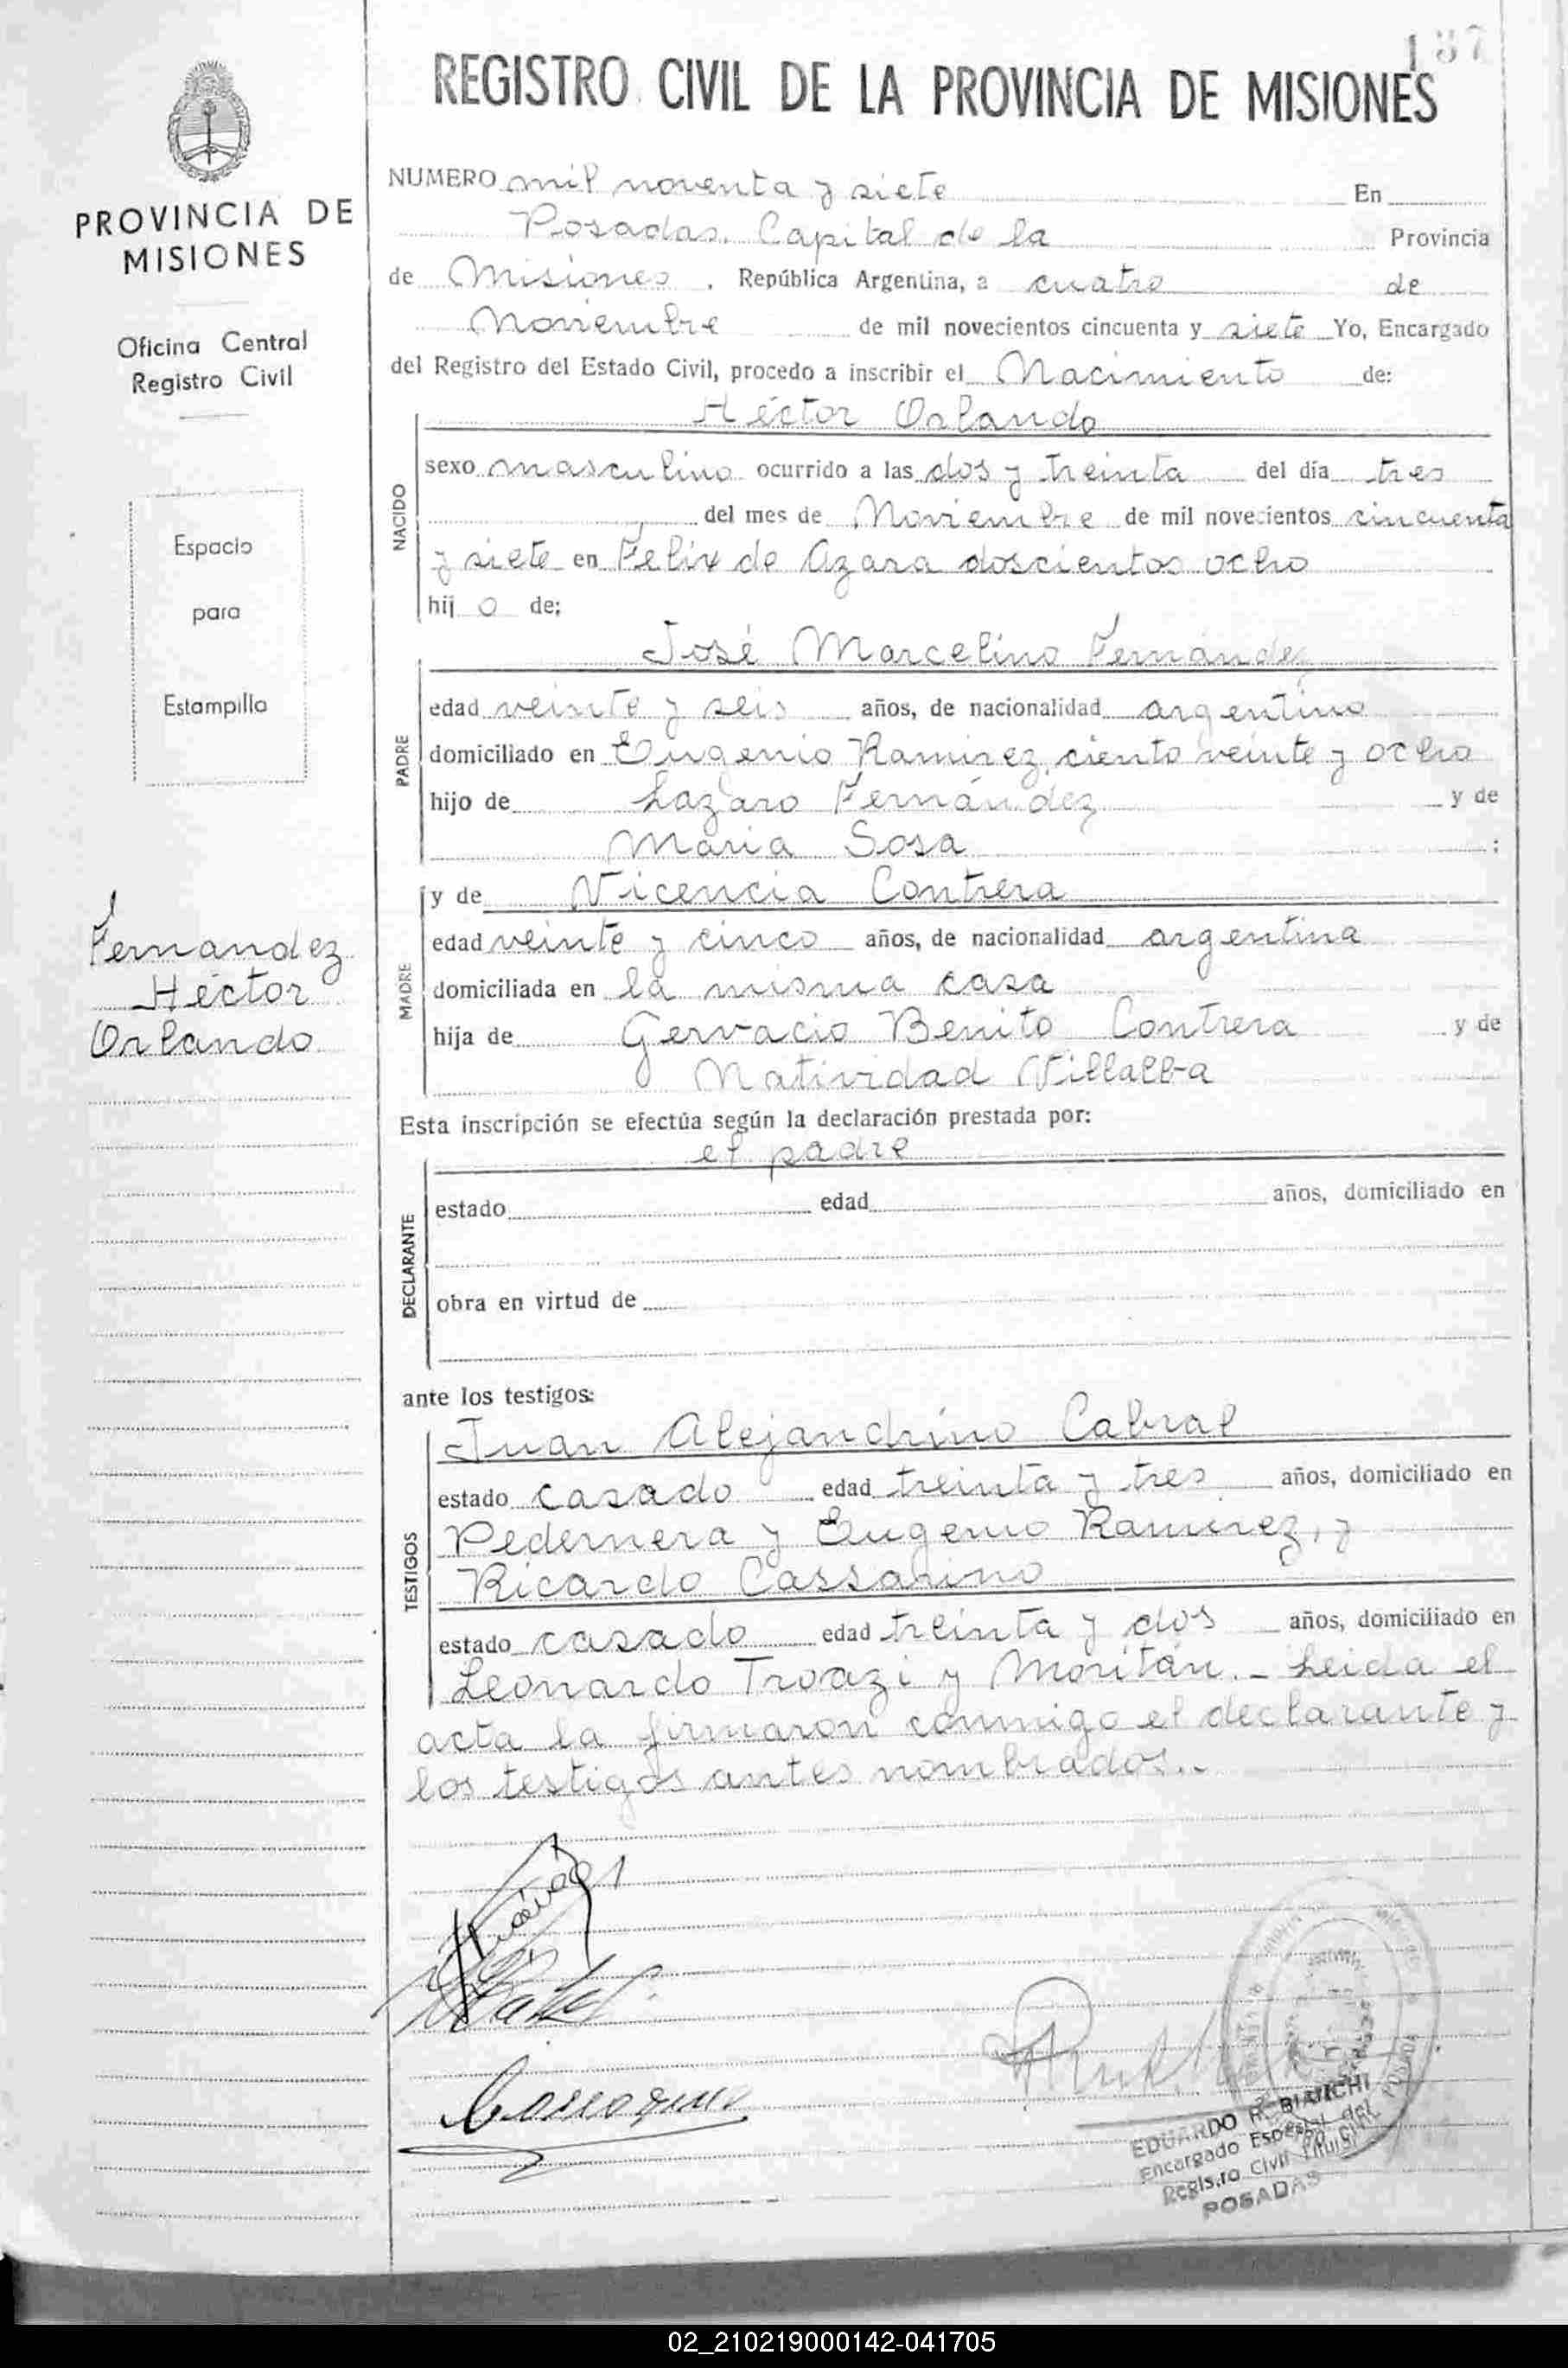 137
REGISTRO CIVIL DE LA PROVINCIA DE MISIONES
PROVINCIA DE
MISIONES
Oficina Central
Registro Civil
Espacio
para
Estampilla
Fernandez
Héctor
Orlando
NUMERO mil noventa y siete En
Posadas. Capital de la Provincia
de Misiones . República Argentina, a cuatro de
Noviembre de mil novecientos cincuenta y siete Yo, Encargado
del Registro del Estado Civil, procedo a inscribir el Nacimiento de:
Héctor Orlando
NACIDO
sexo masculino ocurrido a las dos y treinta del día tres
del mes de Noviembre de mil novecientos cincuenta
y siete en Felix de Azara doscientos ocho
hij o de;
José Marcelino Fernández
PADRE
edad veinte y seis años, de nacionalidad argentino
domiciliado en Eugenio Ramirez, ciento veinte y ocho
hijo de Lazaro Fernández y de
Maria Sosa ;
y de Vicencia Contrera
MADRE
edad veinte y cinco años, de nacionalidad argentina
domiciliada en la misma casa
hija de Gervacio Benito Contrera y de
Natividad Villalba
Esta inscripción se efectúa según la declaración prestada por:
el padre
DECLARANTE
estado edad años, domiciliado en
obra en virtud de
ante los testigos:
Juan Alejandrino Cabral
TESTIGOS
estado casado edad treinta y tres años, domiciliado en
Pedernera y Eugenio Ramirez, y
Ricardo Cassarino
estado casado edad treinta y dos años, domiciliado en
Leonardo Troazi y Moritán.- Leida el
acta la firmaron conmigo el declarante y
los testigos antes nombrados..
EDUARDO R. BIANCHI
Encargado Especial del
Registro Civil
POSADAS
02_210219000142-041705